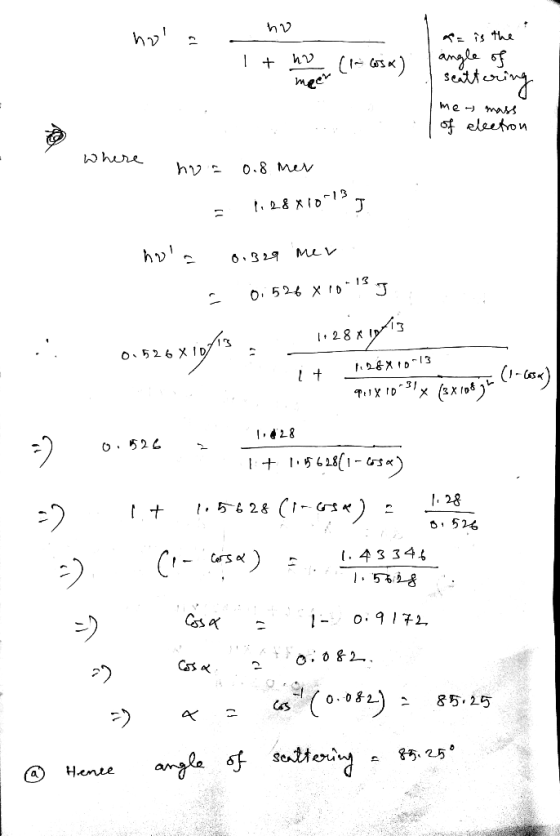 hν' = hν / (1 + hν/mec² (1-cosα))
α = is the angle of scattering
me → mass of electron
where hν = 0.8 Mev
= 1.28 X10^-13 J
hν' = 0.329 Mev
= 0.526 X 10^-13 J
∴ 0.526 X 10^-13 = 1.28 X 10^-13 / (1 + 1.28X10^-13 / (9.1X10^-31 X (3X10^8)²) (1-cosα))
=> 0.526 = 1.28 / (1 + 1.5628(1-cosα))
=> 1 + 1.5628 (1-cosα) = 1.28 / 0.526
=> (1- cosα) = 1.43346 / 1.5628
=> Cosα = 1- 0.9172
=> Cosα = 0.082.
=> α = cos^-1 (0.082) = 85.25
(a) Hence angle of scattering = 85.25°